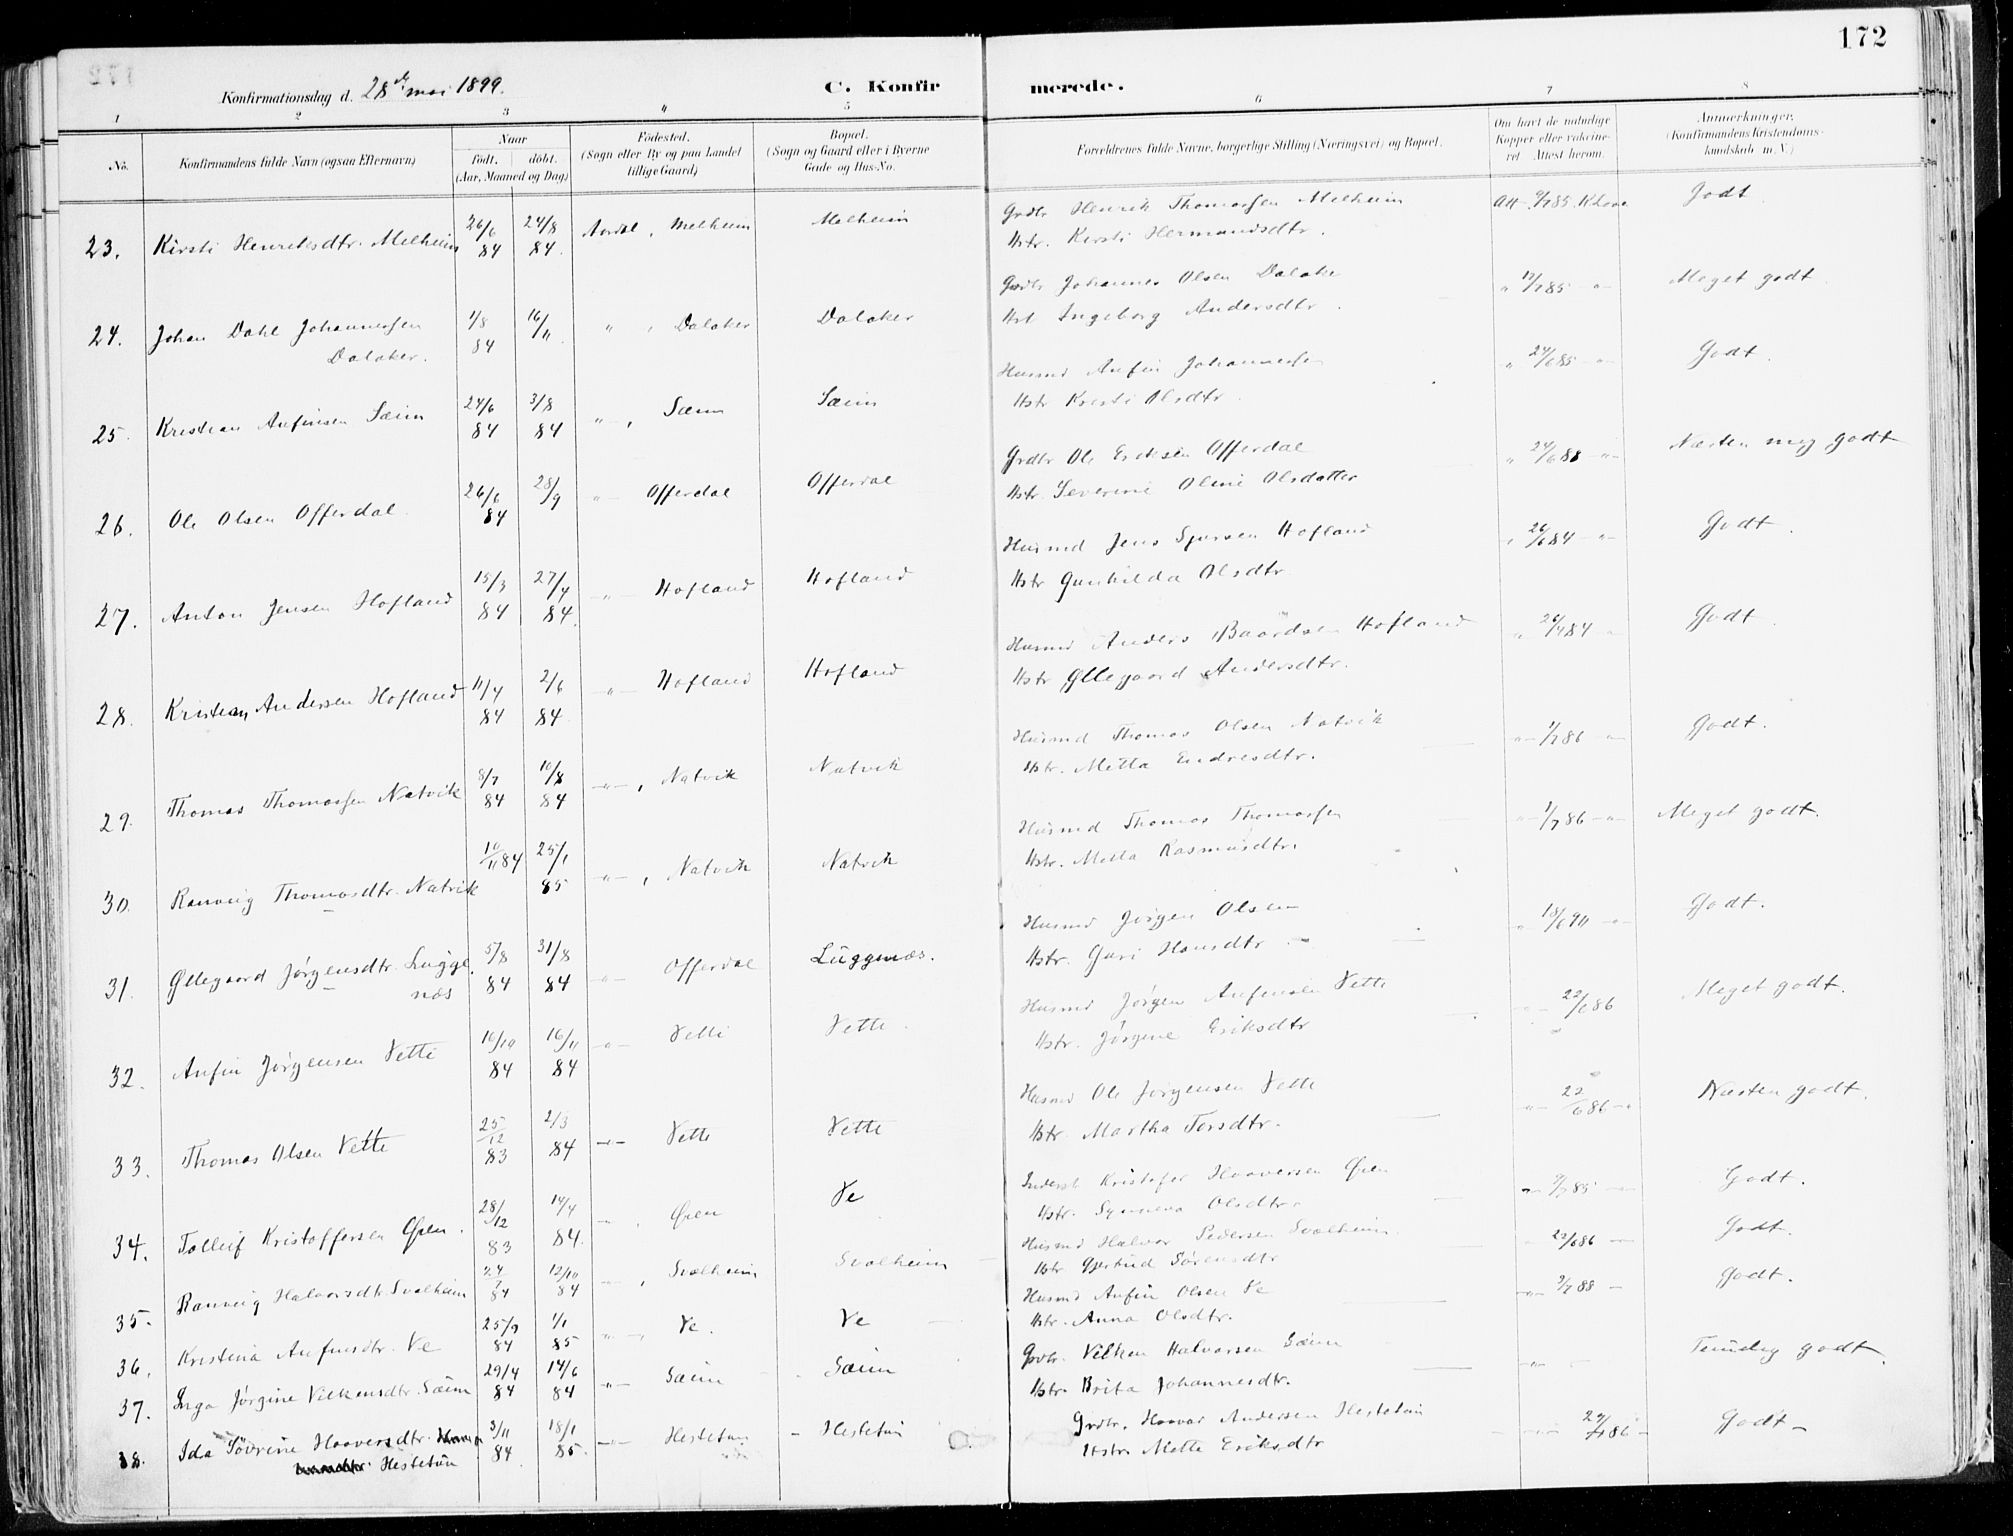 172
Konfirmationsdag d. 28de mai 1899.
C. Konfirmerede.
1 2 3 4 5 6 7 8
No. Konfirmandens fulde Navn (ogsaa Efternavn)
Naar født. døbt. (Aar, Maaned og Dag)
Fødested. (Sogn eller By og paa Landet tillige Gaard)
Bopæl. (Sogn og Gaard eller i Byerne Gade og Hus-No.
Forældrenes fulde Navne, borgerlige Stilling (Næringsvei) og Bopæl.
Om havt de naturlige Kopper eller vaccineret. Attest herom.
Anmærkninger, (Konfirmandens Kristendomskundskab m. V.)
23. Kirsti Henriksdtr. Melheim 26/6 84 24/8 84. Aardal, Melheim Melheim Grdbr Henrik Thomassen Melheim Att. 9/7 85. Godt
Hstr. Kersti Hermundsdtr.
24. Johan Dahl Johannessen 1/8 84 16/11 " , Dalaker Dalaker Grdbr Johannes Olsen Dalaker " 12/7 85 -"- Meget godt
Dalaker. Hst Ingeborg Andersdtr.
25. Kristian Anfinsen Sæim 24/6 84 3/8 84 -"-, Sæim Sæim Husmd Anfin Johannessen " 24/6 85 -"- Godt.
Hstr Kristi Olsdtr.
26. Ole Olsen Offerdal 26/6 84 28/9 "- Offerdal Offerdal Grdbr Ole Eriksen Offerdal " 24/6 88 -"- Næsten meg godt
Hstr. Severine Oline Olsdatter
27. Anton Jensen Hofland 15/3 84 27/4 84. -"- Hofland Hofland Husmd Jens Sjursen Hofland " 26/6 84 -"- Godt.
Hstr Gunhilda Olsdtr
28. Kristian Andersen Hofland 11/4 84 2/6 84 -"- Hofland Hofland Husmd Anders Baardsen Hofland " 26/7 84 " Godt.
Hstr Øllegaard Andersdtr.
29. Thomas Thomassen Natvik 8/7 84 10/8 84 -"-, Natvik Natvik Husmd Thomas Olsen Natvik -"- 1/7 86 -"- Godt.
Hstr. Metta Endresdtr.
30. Ranveig Thomasdtr. Natvik 10/11 84 25/1 85 -"-, Natvik Natvik Husmd Thomas Thomassen -"- 1/7 86 -"- Meget godt.
Hstr. Metta Rasmusdtr.
31. Øllegaard Jørgensdtr. Lugge 5/8 84 31/8 84 -"- Offerdal Luggnæs. Husmd Jørgen Olsen -"- 18/6 90 -"- Godt.
næs Hstr. Guri Hansdtr
32. Anfin Jørgensen Vetti 10/10 84 16/11 84 -"- Vetti Vette Husmd Jørgen Anfinsen Vette -"- 22/6 86 Meget godt.
Hstr. Jørgine Eriksdtr
33. Thomas Olsen Vette 25/12 83 2/3 84 -"- Vette Vette Husmd Ole Jørgensen Vette -"- 22/6 86 -"- Næsten godt.
Hstr. Martha Torsdtr.
34. Tolleif Kristoffersen Øren. 28/12 83 14/4 84. -"-, Øren Ve Inderst Kristofer Haaversen Øren -"- 9/7 85 -"- Godt.
Hstr. Synneva Olsdtr.
35. Ranveig Halvorsdtr. Svalheim 24/7 84 12/10 84 -"-, Svalheim Svalheim Husmd Halvor Pedersen Svalheim -"- 22/6 86 -"- Godt.
Hstr Gjertrud Sørensdtr
36. Kristina Anfinsdtr. Ve 25/9 84 1/1 85 -"-, Ve. Ve Husmd Anfin Olsen Ve -"- 9/7 88 - Godt.
Hstr. Anna Olsdtr.
37. Inga Jørgine Vilkensdtr. Sæim 29/4 84 14/6 84 -"- Sæim Sæim Grdbr. Vilken Halvorsen Sæim -"- Temelig godt.
Hstr. Brita Johannesdtr.
38. Ida Søvrine Haaversdtr. 3/11 84 18/1 85 -"- Hestetun Hestetun Grdbr. Haavar Andersen Hestetun -"- 29/7 86 - Godt
Hestetun Hstr. Mette Eriksdtr